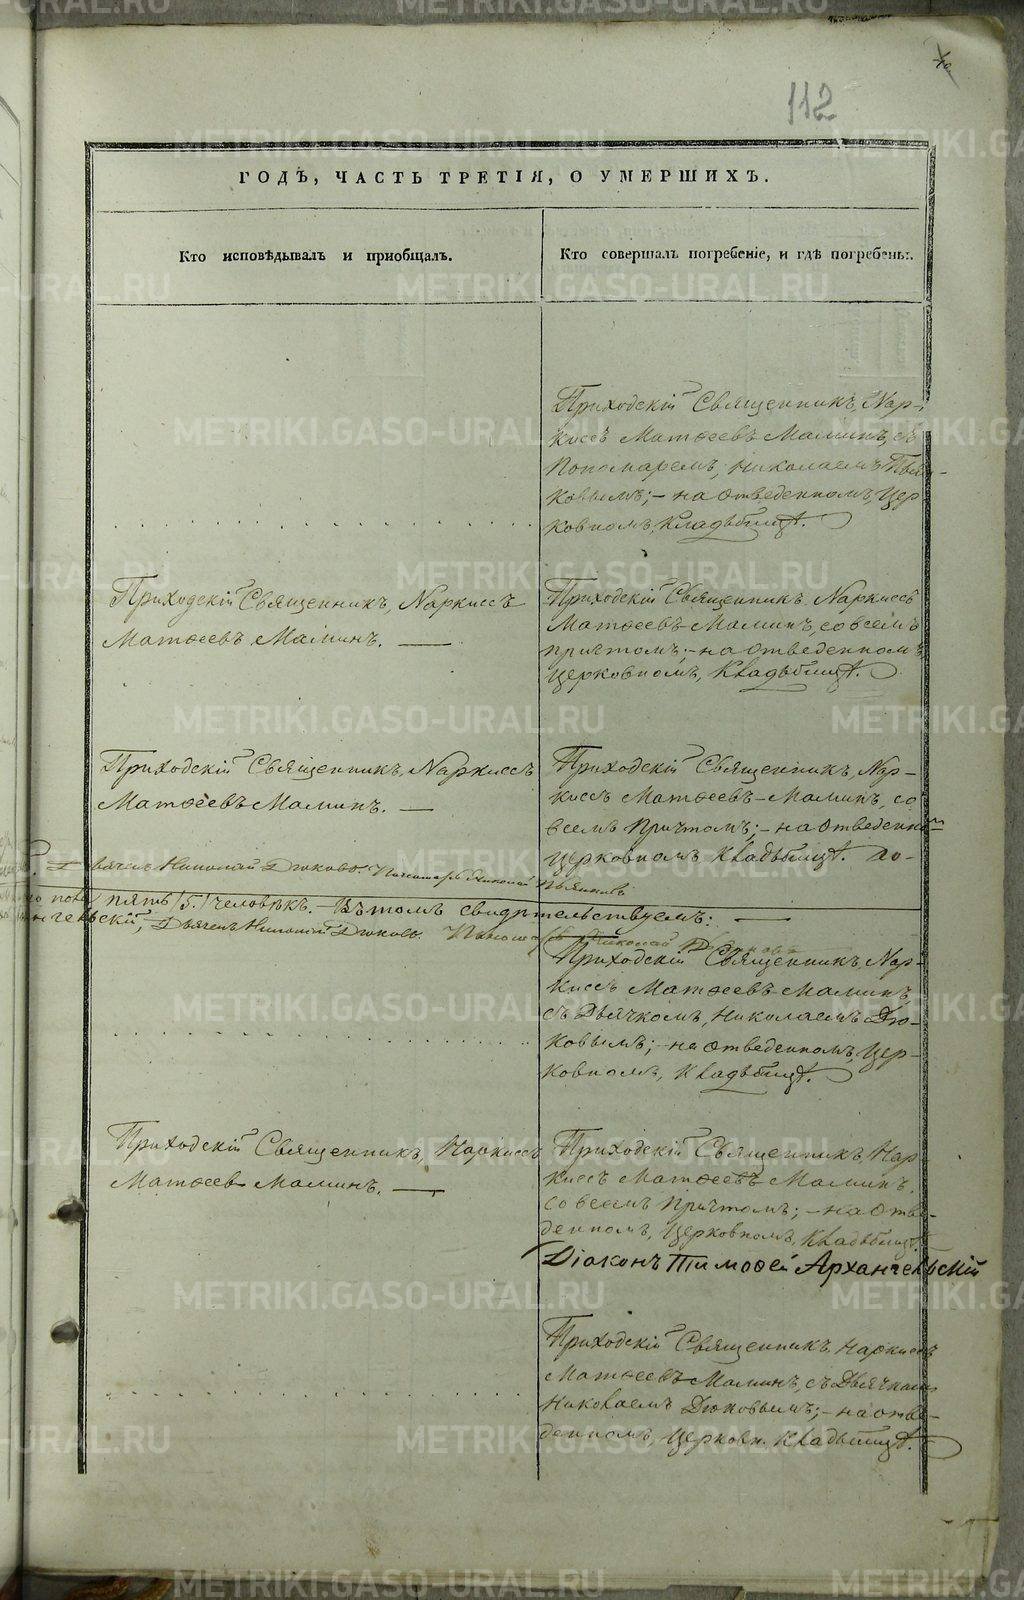 112
ГОДЪ, ЧАСТЬ ТРЕТІЯ, О УМЕРШИХЪ.
Кто исповѣдывалъ и пріобщалъ.
Кто совершалъ погребеніе, и гдѣ погребены.
Приходскій Священникъ, Нар-
киссъ Матѳеевъ Маминъ, съ
Пономаремъ, Николаемъ
ковымъ; - на отведенномъ, Цер
ковномъ, Кладьбищѣ.
Приходскій Священникъ, Наркиссъ
Матѳеевъ Маминъ. —
Приходскій Священникъ Наркиссъ
Матѳеевъ Маминъ, со всемъ
причтомъ; - на отведенномъ
церковномъ, Кладьбищѣ.
Приходскій Священникъ, Наркиссъ
Матѳеевъ Маминъ. —
Приходскій Священникъ, Нар-
киссъ Матѳеевъ Маминъ, со
всемъ Причтомъ; - на отведенном
церковномъ Кладьбищѣ.
Николай Дюковъ. Пономарь Николай
пять /5./ человѣкъ. - Въ томъ свидѣтельствуемъ: —
Дьячекъ Николай Дюковъ. Пономарь Николай
Приходскій Священникъ, Нар-
киссъ Матѳеевъ Маминъ,
съ Дьячкомъ, Николаемъ Дю-
ковымъ; - на отведенномъ, Цер-
ковномъ, Кладьбищѣ.
Приходскій Священникъ, Наркиссъ
Матѳеев Маминъ. —
Приходскій Священникъ, Нар
киссъ Матѳеевъ Маминъ,
со всемъ Причтомъ; - на Отве-
денномъ, Церковномъ, Кладьбищѣ.
Діаконъ Тимоѳей Архангельскій
Приходскій Священникъ, Наркиссъ
Матѳеевъ Маминъ, съ Дьячкомъ
Николаемъ Дюковымъ; - на отве-
денномъ, Церковн. Кладьбищѣ.
METRIKI.GASO-URAL.RU